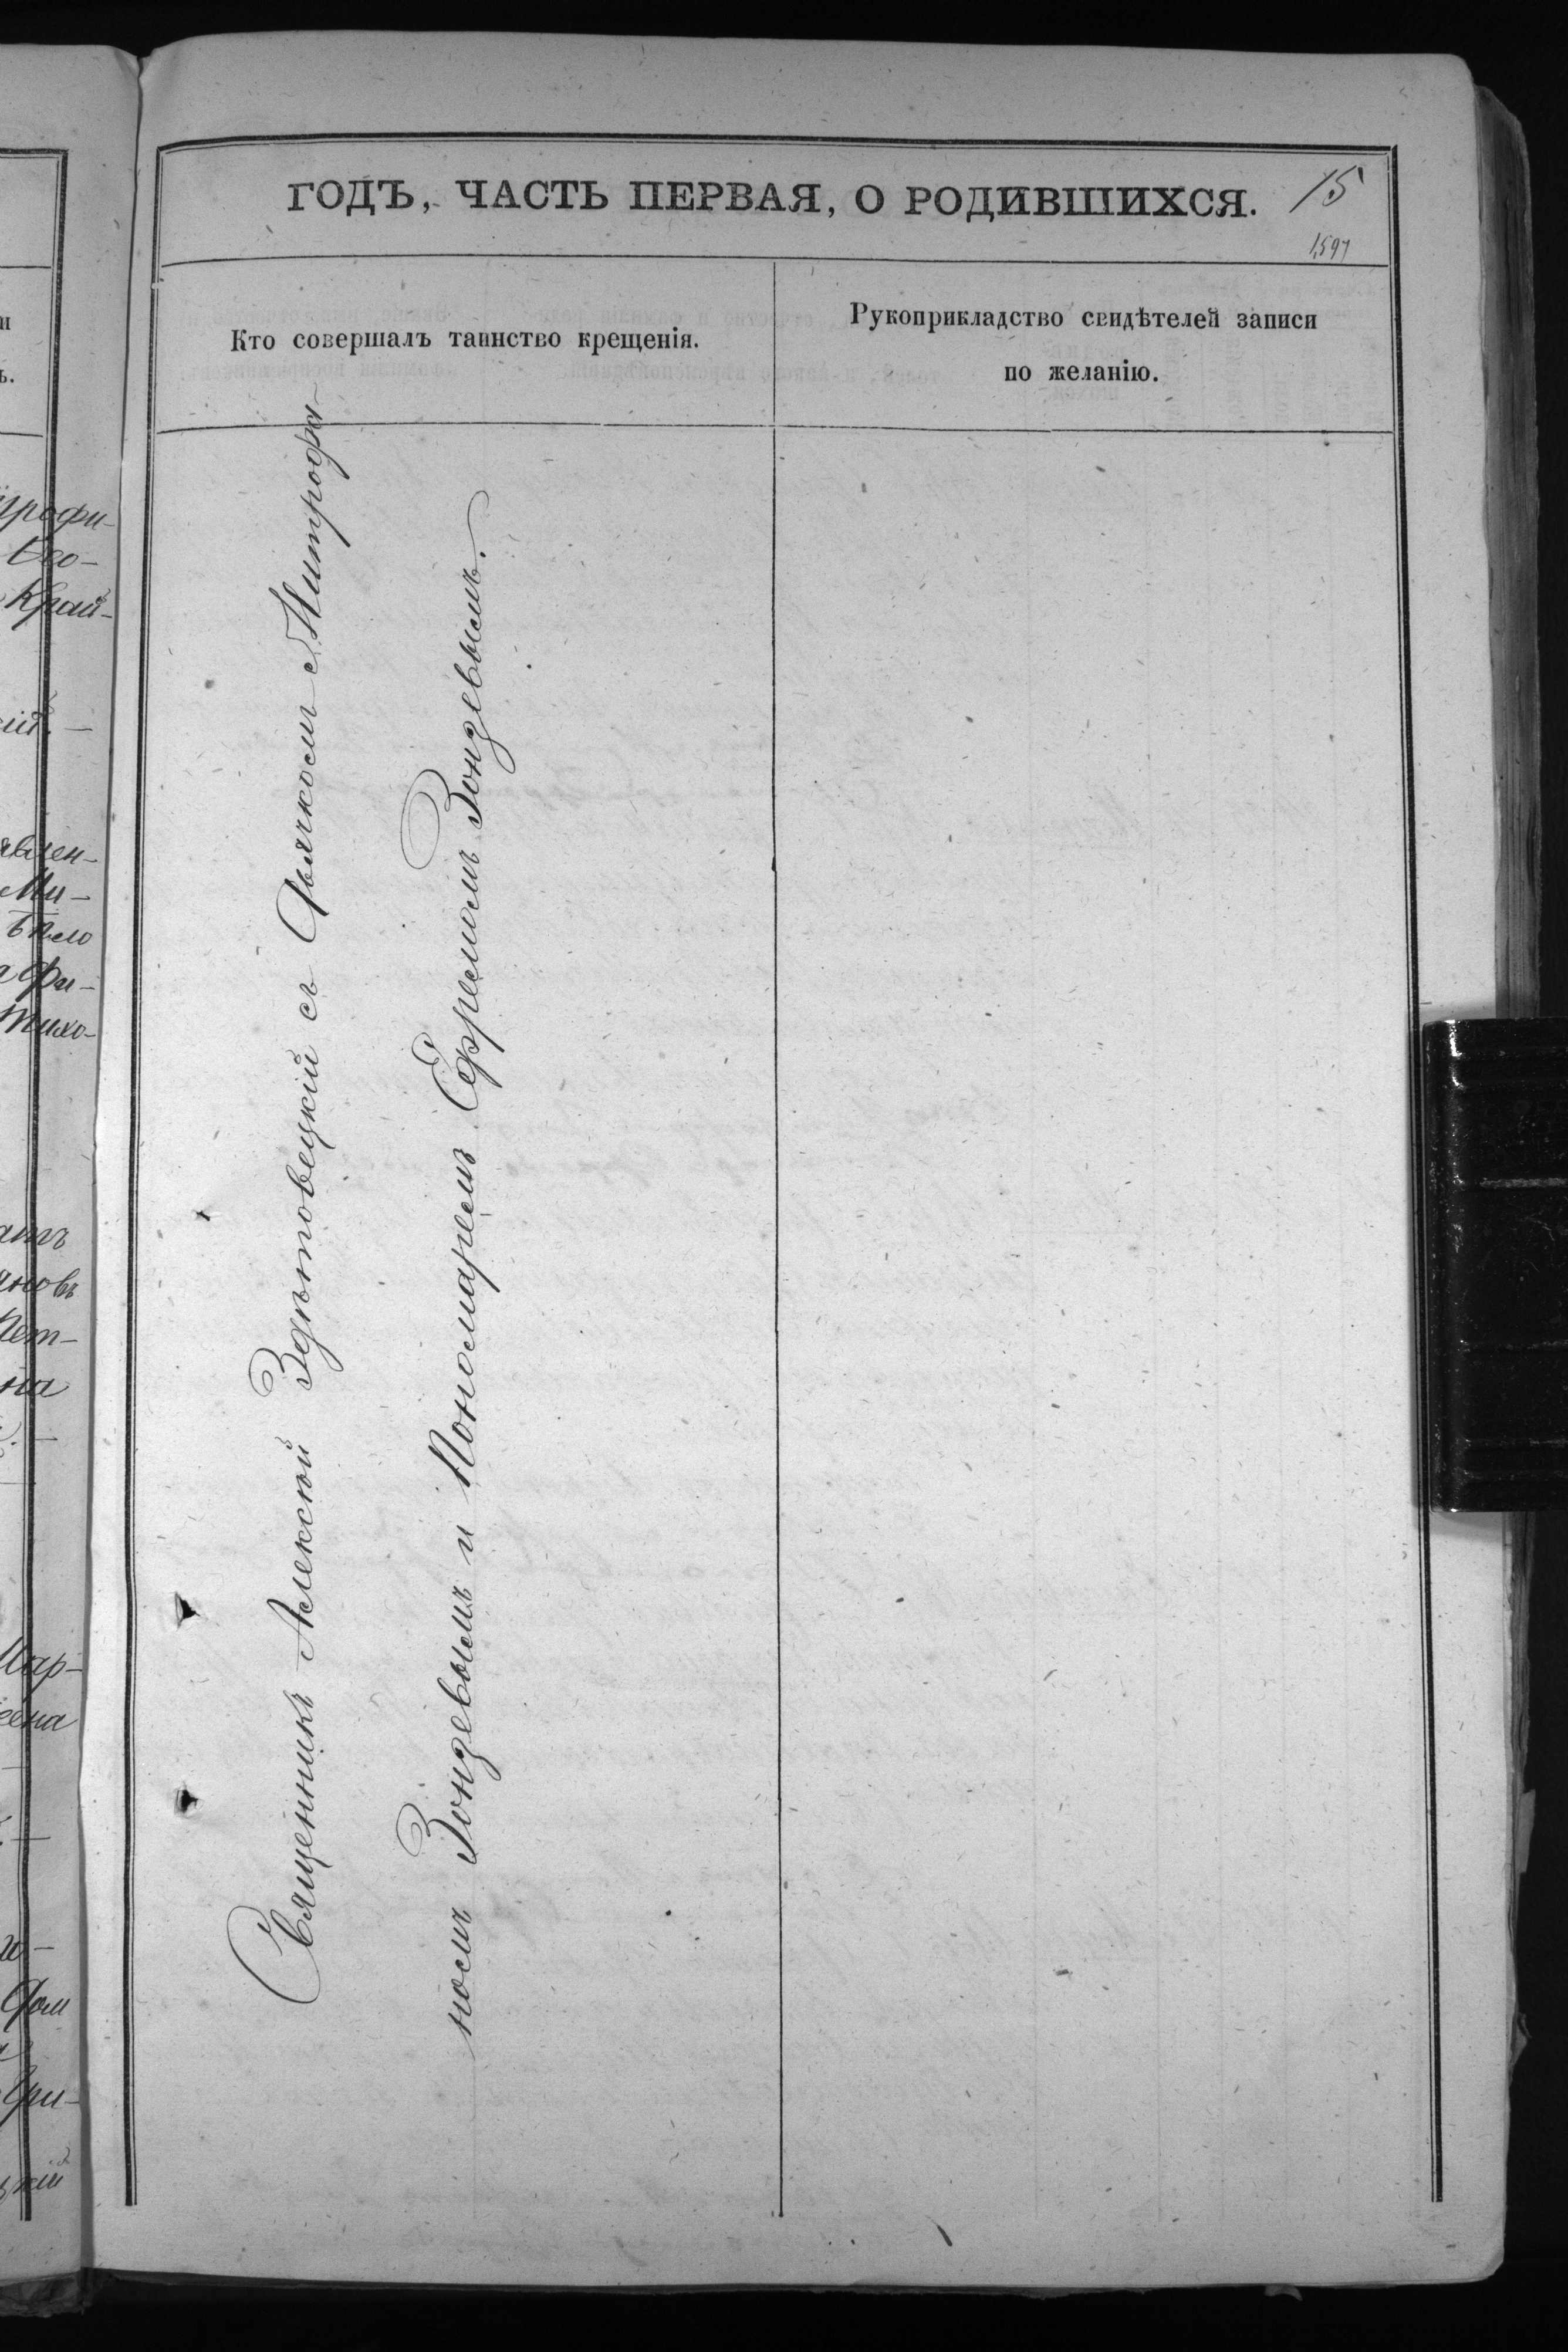 ГОДЪ, ЧАСТЬ ПЕРВАЯ, О РОДИВШИХСЯ.
15
1,597
Кто совершалъ таинство крещенія.
Рукоприкладство свидѣтелей записи
по желанію.
Священникъ Алексѣй Здѣтовецкій съ Дьячкомъ Митрофа-
номъ Зонзевымъ и Пономаремъ Ефремомъ Зонзевымъ.
ъ.
Край-
явлен-
Ми-
Тихо-
ановъ
на
Мар-